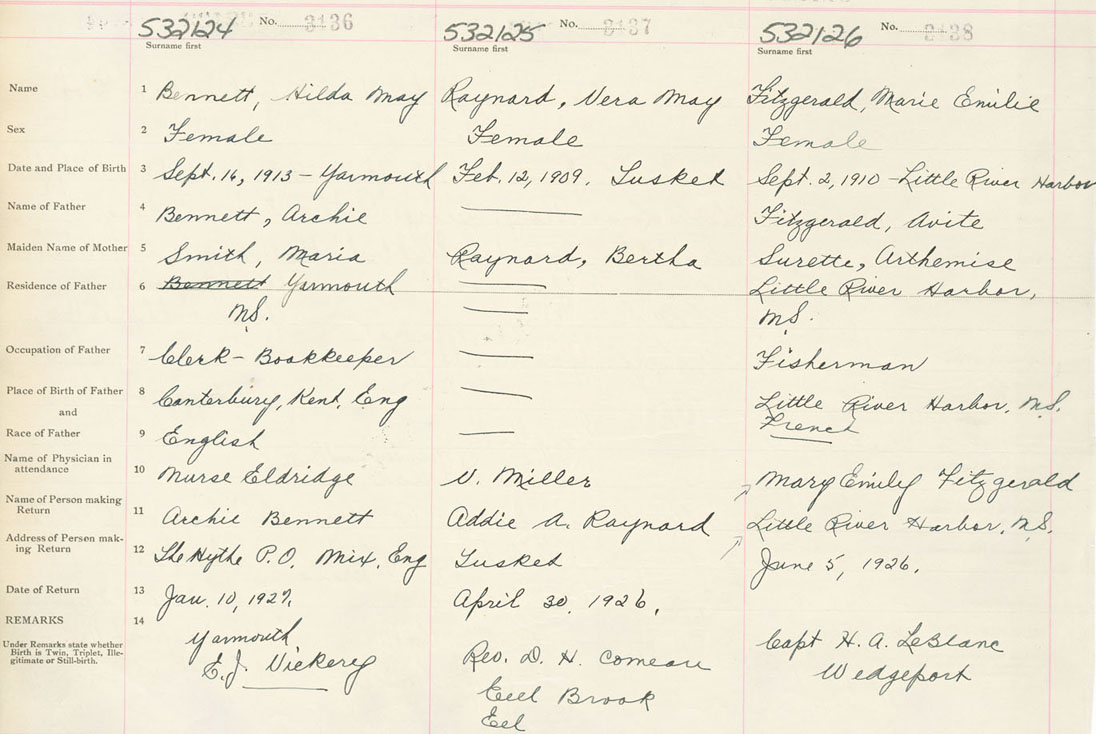 532124 No. 3136 532125 No. 3137 532126 No. 3138
Surname first Surname first Surname first
Name 1 Bennett, Hilda May Raynard, Vera May Fitzgerald, Marie Emilie
Sex 2 Female Female Female
Date and Place of Birth 3 Sept. 16, 1913 - Yarmouth Feb. 12, 1909. Tusket Sept. 2, 1910 - Little River Harbor
Name of Father 4 Bennett, Archie Fitzgerald, Avite
Maiden Name of Mother 5 Smith, Maria Raynard, Bertha Surette, Arthemise
Residence of Father 6 Bennett Yarmouth Little River Harbor,
N.S. N.S.
Occupation of Father 7 Clerk - Bookkeeper Fisherman
Place of Birth of Father 8 Canterbury, Kent, Eng Little River Harbor, N.S.
and
Race of Father 9 English French
Name of Physician in
attendance 10 Nurse Eldridge V. Miller Mary Emily Fitzgerald
Name of Person making
Return 11 Archie Bennett Addie A. Raynard Little River Harbor, N.S.
Address of Person mak-
ing Return 12 The Hythe P.O. Mix, Eng Tusket June 5, 1926.
Date of Return 13 Jan. 10, 1927. April 30, 1926.
REMARKS 14
Under Remarks state whether
Birth is Twin, Triplet, Ille-
gitimate or Still-birth.
Yarmouth Rev. D. H. Comeau Capt H. A. LeBlanc
E.J. Vickery Eeel Brook Wedgeport
Eel